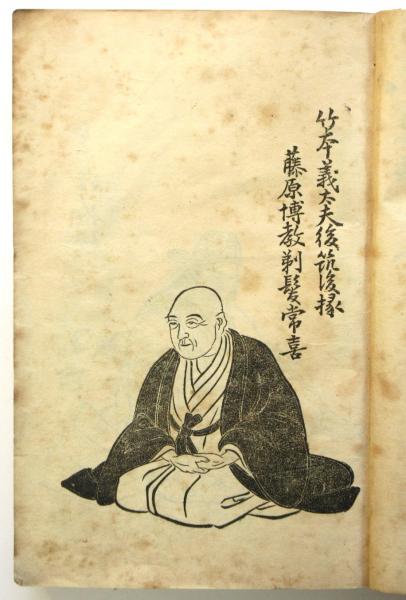 竹本義太夫後筑後掾
藤原博教剃髪常喜